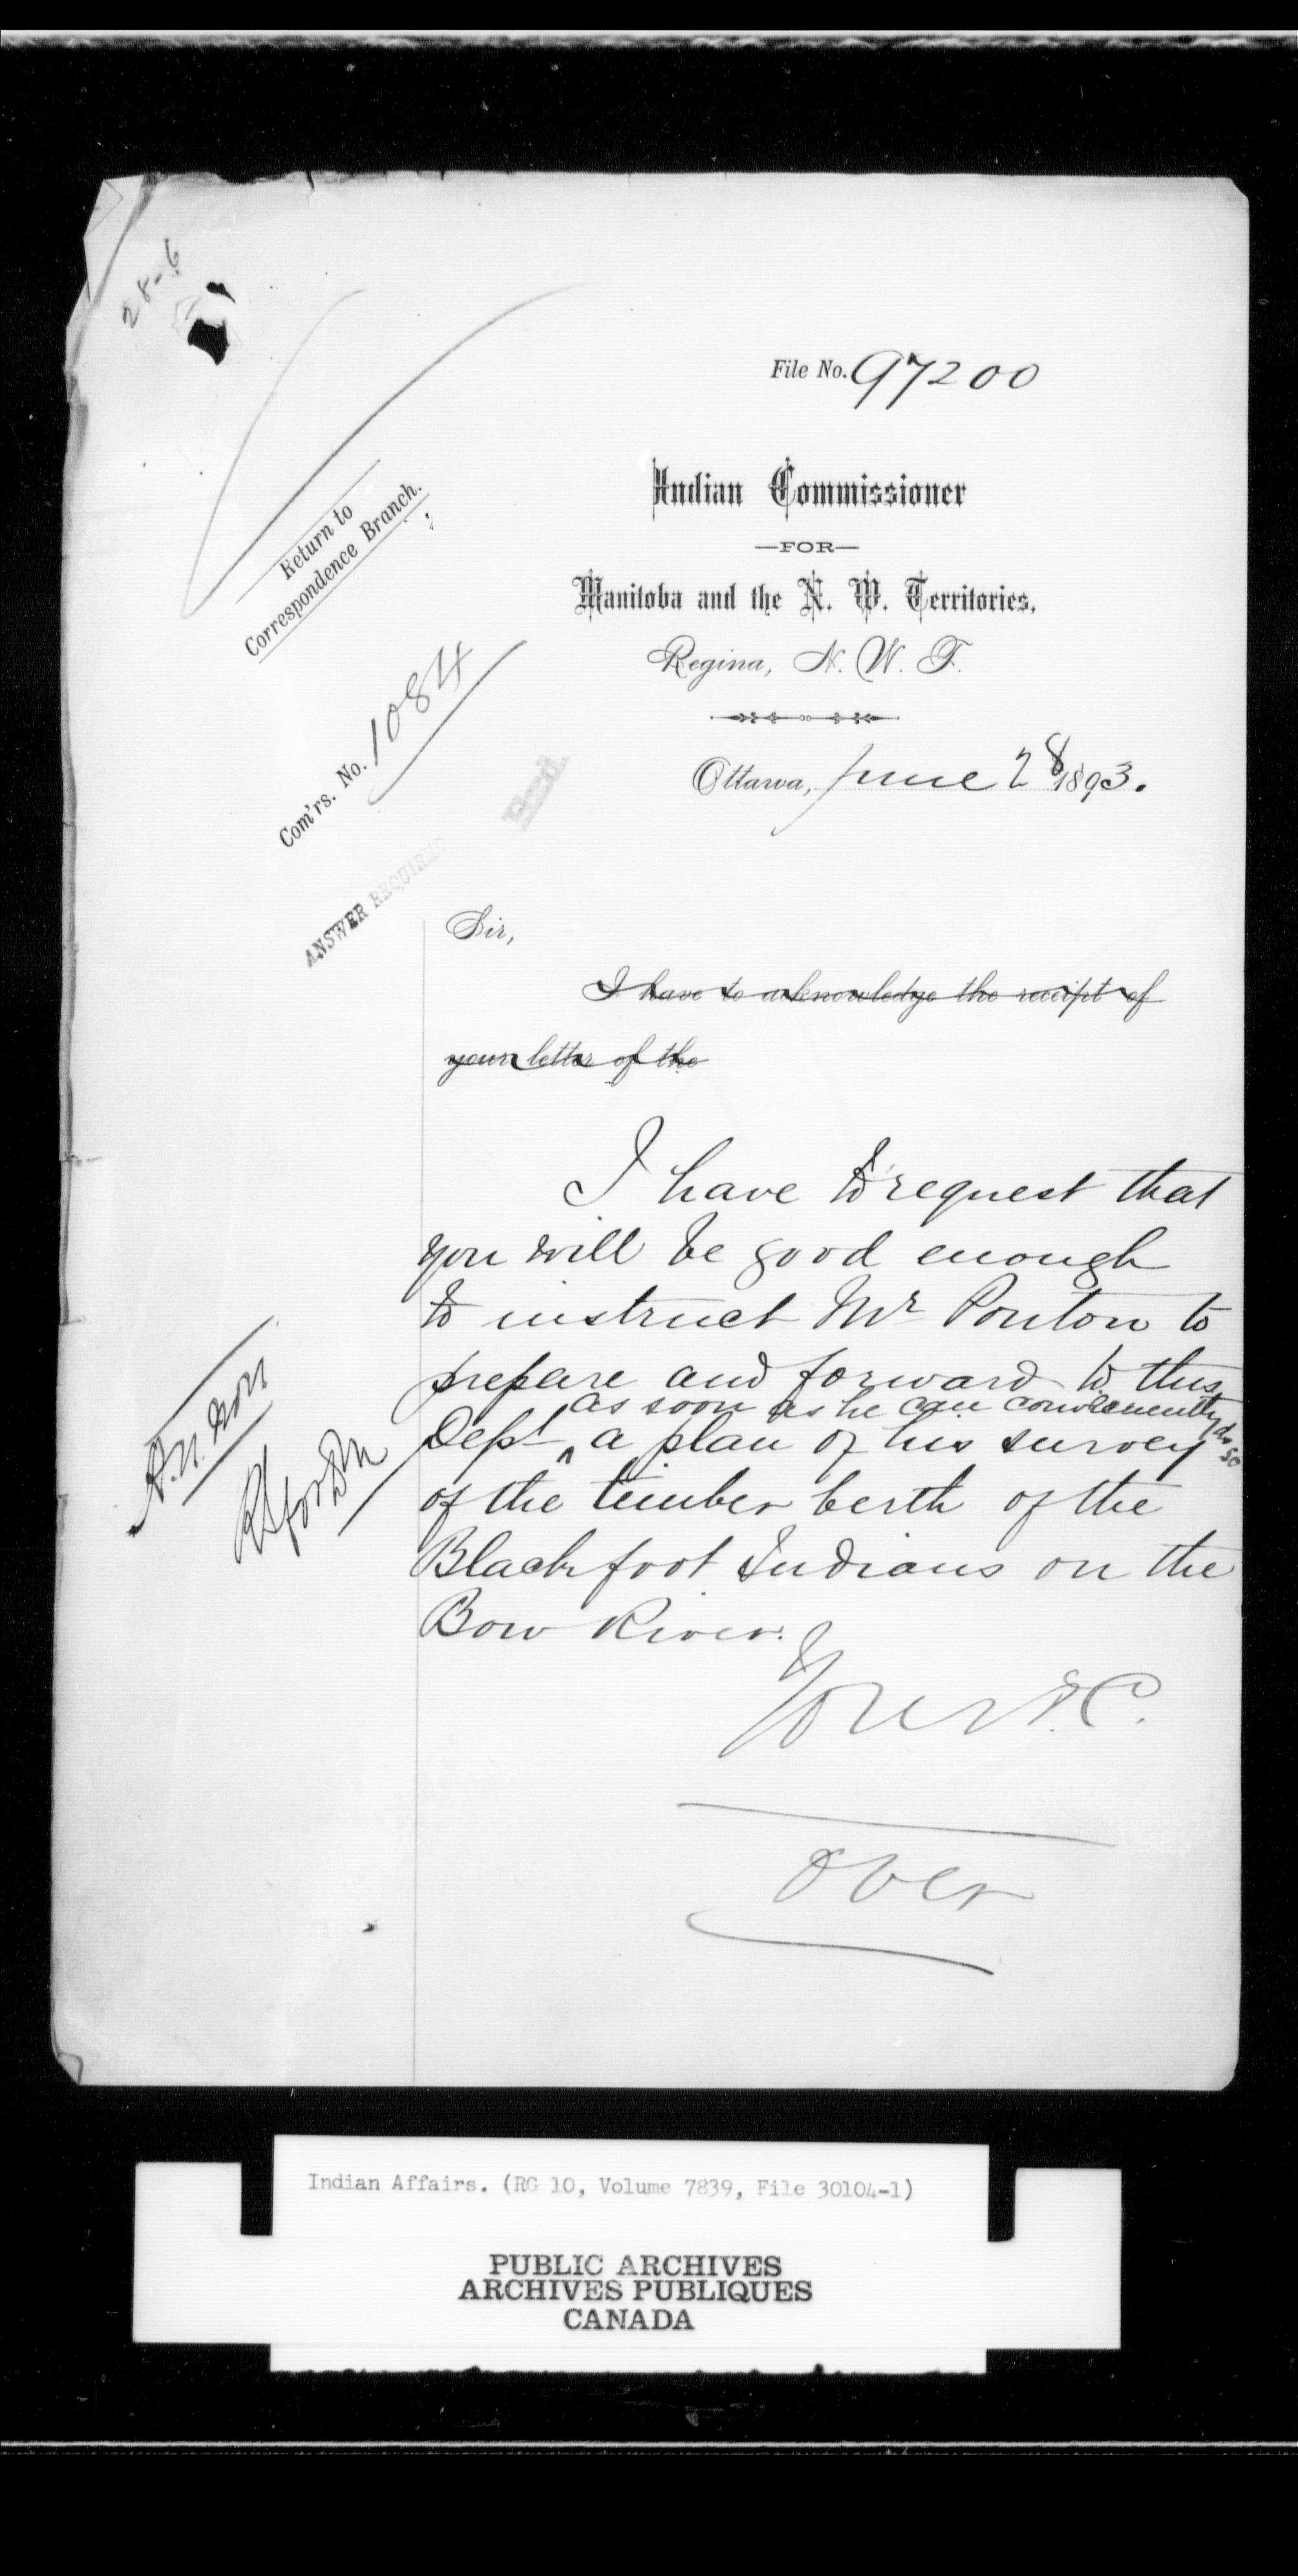 28-6
File No. 97200
Indian Commissioner
—FOR—
Manitoba and the N. W. Territories,
Regina, N. W. T.
Return to
Correspondence Branch.
Com'rs. No. 1084
ANSWER REQUIRED
Ottawa, June 28 1893.
Sir,
I have to acknowledge the receipt of
your letter of the
I have to request that
you will be good enough
to instruct Mr Ponton to
prepare and forward to this
as soon as he can conveniently do so
Dept ^ a plan of his survey
of the timber berth of the
Blackfoot Indians on the
Bow River.
Yours &C.
Over
Indian Affairs. (RG 10, Volume 7839, File 30104-1)
PUBLIC ARCHIVES
ARCHIVES PUBLIQUES
CANADA